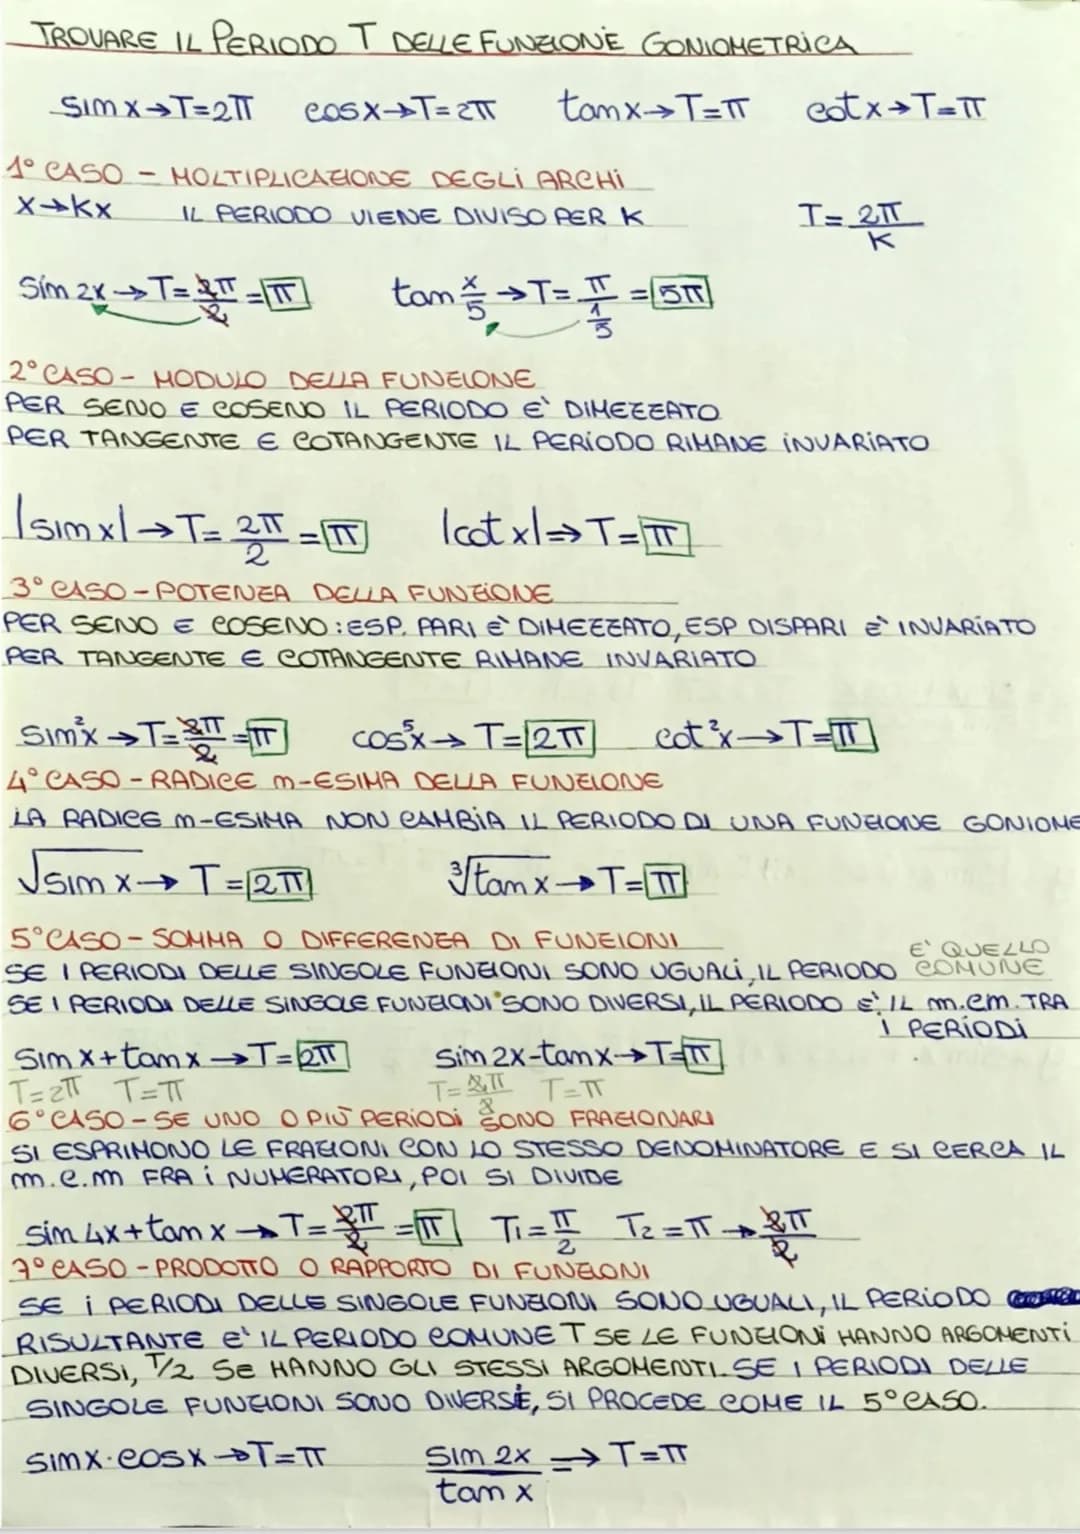 TROVARE IL PERIODO T DELLE FUNZIONE GONIOMETRICA
sin x→T=2π cos x→T=2π tan x→T=π cot x→T=π
1° CASO - MOLTIPLICAZIONE DEGLI ARCHI
x→kx IL PERIODO VIENE DIVISO PER K T=2π/K
sin 2x→T=2π/2=π tan x/5→T=π/(1/5)=5π
2° CASO - MODULO DELLA FUNZIONE
PER SENO E COSENO IL PERIODO E' DIMEZZATO
PER TANGENTE E COTANGENTE IL PERIODO RIMANE INVARIATO
|sin x|→T=2π/2=π |cot x|⇒T=π
3° CASO - POTENZA DELLA FUNZIONE
PER SENO E COSENO: ESP. PARI E' DIMEZZATO, ESP DISPARI E' INVARIATO
PER TANGENTE E COTANGENTE RIMANE INVARIATO
sin²x→T=2π/2=π cos⁵x→T=2π cot²x→T=π
4° CASO - RADICE n-ESIMA DELLA FUNZIONE
LA RADICE n-ESIMA NON CAMBIA IL PERIODO DI UNA FUNZIONE GONIOME
√sin x→T=2π ³√tan x→T=π
5° CASO - SOMMA O DIFFERENZA DI FUNZIONI
SE I PERIODI DELLE SINGOLE FUNZIONI SONO UGUALI, IL PERIODO E' QUELLO COMUNE
SE I PERIODI DELLE SINGOLE FUNZIONI SONO DIVERSI, IL PERIODO E' IL m.c.m. TRA
I PERIODI
sin x+tan x→T=2π sin 2x-tan x→T=π
T=2π T=π T=2π/2 T=π
6° CASO - SE UNO O PIÙ PERIODI SONO FRAZIONARI
SI ESPRIMONO LE FRAZIONI CON LO STESSO DENOMINATORE E SI CERCA IL
m.c.m FRA I NUMERATORI, POI SI DIVIDE
sin 4x+tan x→T=2π/2=π T1=π/2 T2=π→2π/2
7° CASO - PRODOTTO O RAPPORTO DI FUNZIONI
SE I PERIODI DELLE SINGOLE FUNZIONI SONO UGUALI, IL PERIODO
RISULTANTE E' IL PERIODO COMUNE T SE LE FUNZIONI HANNO ARGOMENTI
DIVERSI, T/2 SE HANNO GLI STESSI ARGOMENTI. SE I PERIODI DELLE
SINGOLE FUNZIONI SONO DIVERSE, SI PROCEDE COME IL 5° CASO.
sin x·cos x→T=π sin 2x/tan x⇒T=π